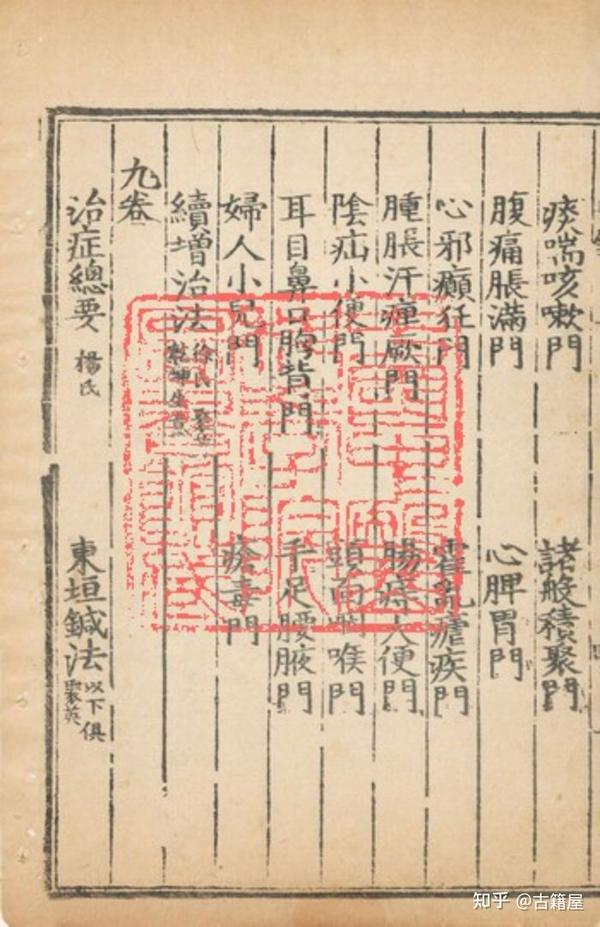 痰喘咳嗽門 諸般積聚門
腹痛脹滿門 心脾胃門
心邪癲狂門 霍亂瘧疾門
腫脹汗痺厥門 腸痔大便門
陰疝小便門 頭面咽喉門
耳目鼻口胸背門 手足腰腋門
婦人小兒門 瘡毒門
續增治法 徐氏 聚英 乾坤生意
九卷
治症總要 楊氏 東垣鍼法 以下俱聚英
知乎 @古籍屋